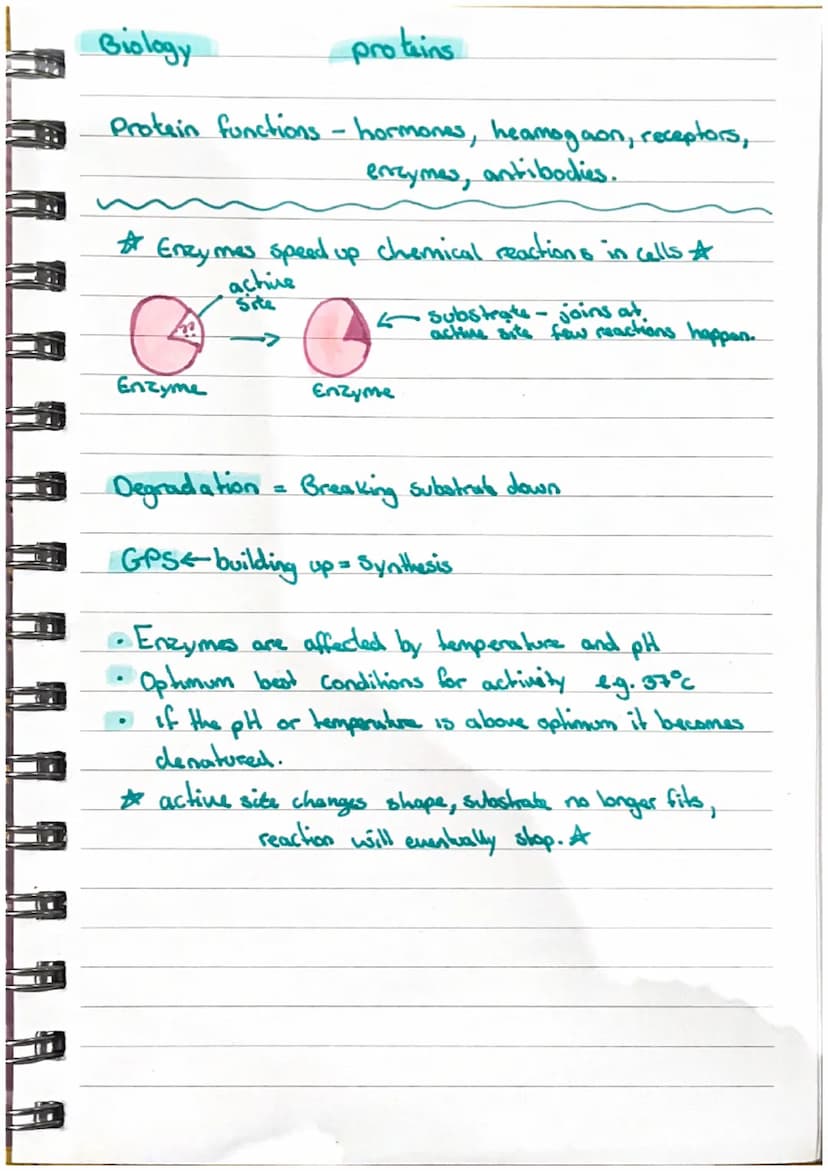 Biology proteins
Protein functions - hormones, heamogaon, receptors,
enzymes, antibodies.
☆ Enzymes speed up chemical reactions in cells ☆
active
site
substrate - joins at
active site few reactions happen.
Enzyme
Enzyme
Degradation = Breaking substrate down
GPS ← building up = Synthesis
• Enzymes are affected by temperature and pH
• Optimum best conditions for activity e.g. 37°c
• if the pH or temperature is above optimum it becomes
denatured.
☆ active site changes shape, substrate no longer fits,
reaction will eventually stop. ☆